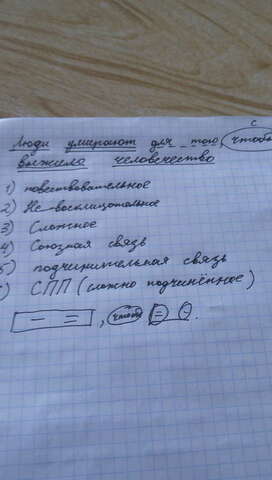 с
Люди умирают для того, чтобы
выжила человечество
1) повествовательное
2) Не-восклицательное
3) Сложное
4) Союзная связь
5) подчинительная связь
) СПП (сложно подчинённое)
, чтобы .